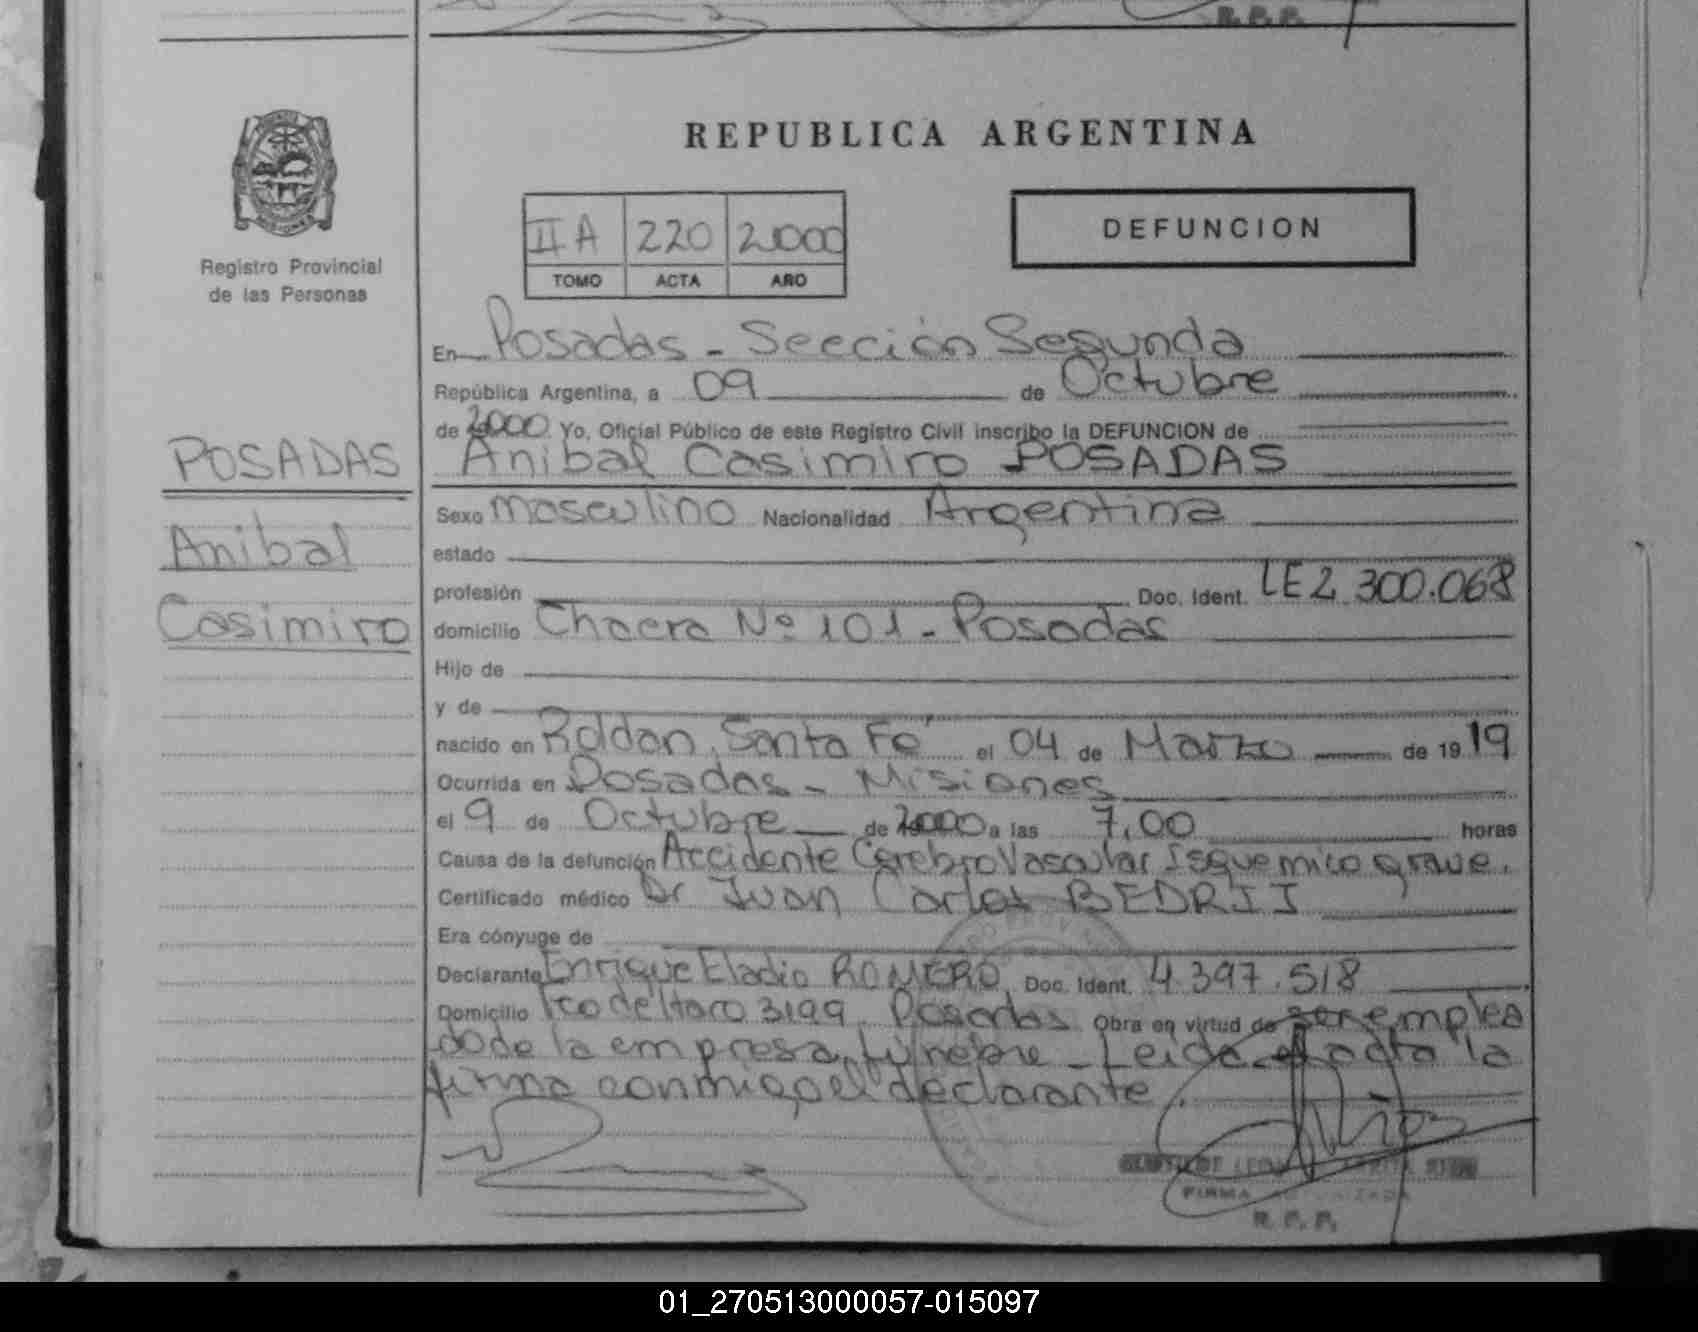 REPUBLICA ARGENTINA
Registro Provincial
de las Personas
II A 220 2000
TOMO ACTA AÑO
DEFUNCION
POSADAS
Anibal
Casimiro
En Posadas - Sección Segunda
República Argentina, a 09 de Octubre
de 2000 Yo, Oficial Público de este Registro Civil inscribo la DEFUNCION de
Anibal Casimiro POSADAS
Sexo masculino Nacionalidad Argentina
estado
profesión Doc. Ident. LE 2.300.068
domicilio Chacra Nº 101 - Posadas
Hijo de
y de
nacido en Roldan, Santa Fé el 04 de Marzo de 1919
Ocurrida en Posadas - Misiones
el 9 de Octubre de 2000 a las 7,00 horas
Causa de la defunción Accidente Cerebro Vascular Isquemico grave.
Certificado médico Dr Juan Carlos BEDRIJ
Era cónyuge de
Declarante Enrique Eladio ROMERO Doc. Ident. 4.397.518
Domicilio Fco de Haro 3199 Posadas Obra en virtud de ser emplea
do de la empresa fúnebre - Leida el acta la
firma conmigo el declarante.
FIRMA
R. P. P.
01_270513000057-015097